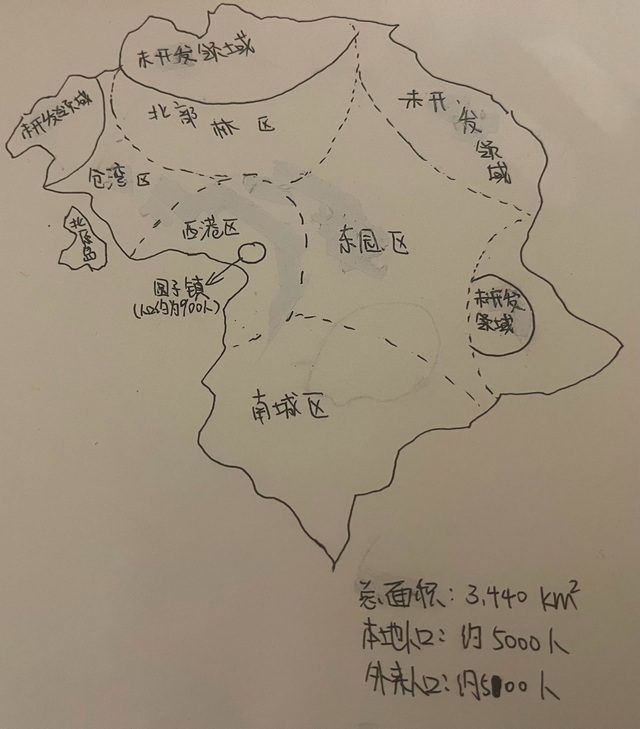 未开发领域
未开发领域
北部林区
未开
发
领
域
仓湾区
西港区
北
岛
东园区
园子镇
(人口约为900人)
未开发
领域
南城区
总面积: 3,440 km²
本地人口: 约5000人
外来人口: 约5100人